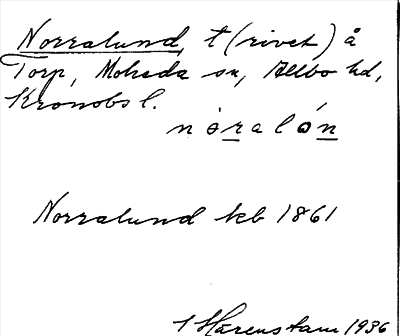 Norralund, t (rivet) å
Torp, Moheda sn, Allbo hd,
Kronobs l.
nòralón
Norralund kb 1861
Härenstam 1936